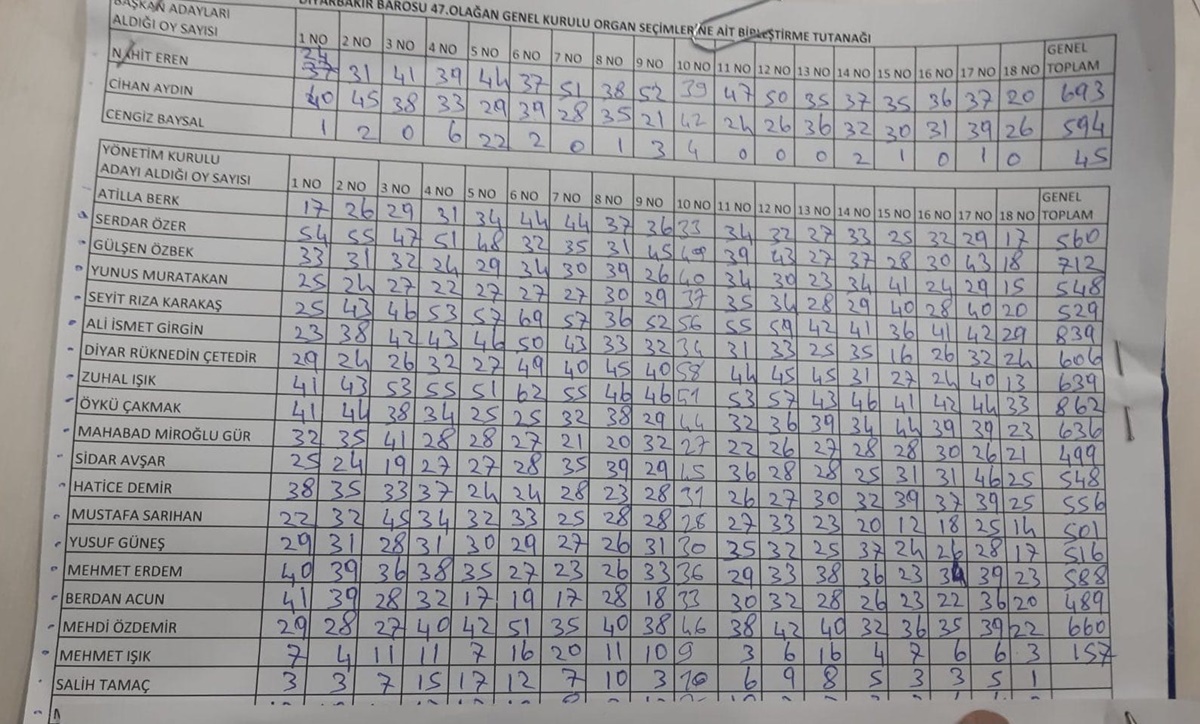 DİYARBAKIR BAROSU 47.OLAĞAN GENEL KURULU ORGAN SEÇİMLERİNE AİT BİRLEŞTİRME TUTANAĞI
BAŞKAN ADAYLARI ALDIĞI OY SAYISI 1 NO 2 NO 3 NO 4 NO 5 NO 6 NO 7 NO 8 NO 9 NO 10 NO 11 NO 12 NO 13 NO 14 NO 15 NO 16 NO 17 NO 18 NO GENEL TOPLAM
NAHİT EREN 24 31 41 39 44 37 51 38 52 39 47 50 35 37 35 36 37 20 693
CİHAN AYDIN 40 45 38 33 29 39 28 35 21 42 24 26 36 32 30 31 39 26 594
CENGİZ BAYSAL 1 2 0 6 22 2 0 1 3 4 0 0 0 2 1 0 1 0 45
YÖNETİM KURULU ADAYI ALDIĞI OY SAYISI 1 NO 2 NO 3 NO 4 NO 5 NO 6 NO 7 NO 8 NO 9 NO 10 NO 11 NO 12 NO 13 NO 14 NO 15 NO 16 NO 17 NO 18 NO GENEL TOPLAM
ATİLLA BERK 17 26 29 31 34 44 44 37 36 33 34 32 27 33 25 32 29 17 560
SERDAR ÖZER 54 55 47 51 48 32 35 31 45 49 39 43 27 37 28 30 43 18 712
GÜLŞEN ÖZBEK 33 31 32 24 29 34 30 39 26 40 34 30 23 34 41 24 29 15 548
YUNUS MURATAKAN 25 24 27 22 27 27 27 30 29 37 35 34 28 29 40 28 40 20 529
SEYİT RIZA KARAKAŞ 25 43 46 53 57 69 57 36 52 56 55 59 42 41 36 41 42 29 839
ALİ İSMET GİRGİN 23 38 42 43 46 50 43 33 32 34 31 33 25 35 16 26 32 24 606
DİYAR RÜKNEDİN ÇETEDİR 29 24 26 32 27 49 40 45 40 58 44 45 45 31 27 24 40 13 639
ZUHAL IŞIK 41 43 53 55 51 62 55 46 46 51 53 57 43 46 41 42 44 33 862
ÖYKÜ ÇAKMAK 41 44 38 34 25 25 32 38 29 44 32 36 39 34 44 39 39 23 636
MAHABAD MİROĞLU GÜR 32 35 41 28 28 27 21 20 32 27 22 26 27 28 28 30 26 21 499
SİDAR AVŞAR 25 24 19 27 27 28 35 39 29 45 36 28 28 25 31 31 46 25 548
HATİCE DEMİR 38 35 33 37 24 24 28 23 28 31 26 27 30 32 39 37 39 25 556
MUSTAFA SARIHAN 22 32 45 34 32 33 25 28 28 26 27 33 23 20 12 18 25 14 501
YUSUF GÜNEŞ 29 31 28 31 30 29 27 26 31 30 35 32 25 37 24 26 28 17 516
MEHMET ERDEM 40 39 36 38 35 27 23 26 33 36 29 33 38 36 23 34 39 23 588
BERDAN ACUN 41 39 28 32 17 19 17 28 18 33 30 32 28 26 23 22 36 20 489
MEHDİ ÖZDEMİR 29 28 27 40 42 51 35 40 38 46 38 42 40 32 36 35 39 22 660
MEHMET IŞIK 7 4 11 11 7 16 20 11 10 9 3 6 16 4 7 6 6 3 157
SALİH TAMAÇ 3 3 7 15 17 12 7 10 3 10 6 9 8 5 3 3 5 1